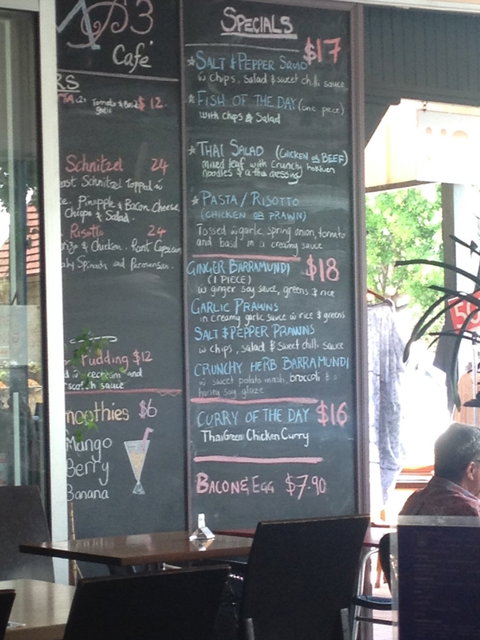 Café
$12.
Schnitzel 24
Schnitzel Topped w
Pineapple & Bacon, Cheese,
Chips & Salad.
Risotto 24
& Chicken. Roast Capsicum
Spinach and Parmesan.
Pudding $12
sauce
moothies $6
Mango
Berry
Banana
SPECIALS
$17
★ SALT & PEPPER SQUID
w chips, salad & sweet chilli sauce
★ FISH OF THE DAY (one piece)
with chips & Salad
★ THAI SALAD (CHICKEN OR BEEF)
mixed leaf with crunchy hokkien
noodles & a thai dressing
★ PASTA/RISOTTO
(CHICKEN OR PRAWN)
Tossed w garlic, spring onion, tomato
and basil in a creamy sauce
GINGER BARRAMUNDI $18
(1 PIECE)
w ginger soy sauce, greens & rice
GARLIC PRAWNS
in creamy garlic sauce w rice & greens
SALT & PEPPER PRAWNS
w chips, salad & sweet chilli sauce
CRUNCHY HERB BARRAMUNDI
w sweet potato mash, broccoli & a
honey soy glaze
CURRY OF THE DAY $16
Thai Green Chicken Curry
BACON & EGG $7.90